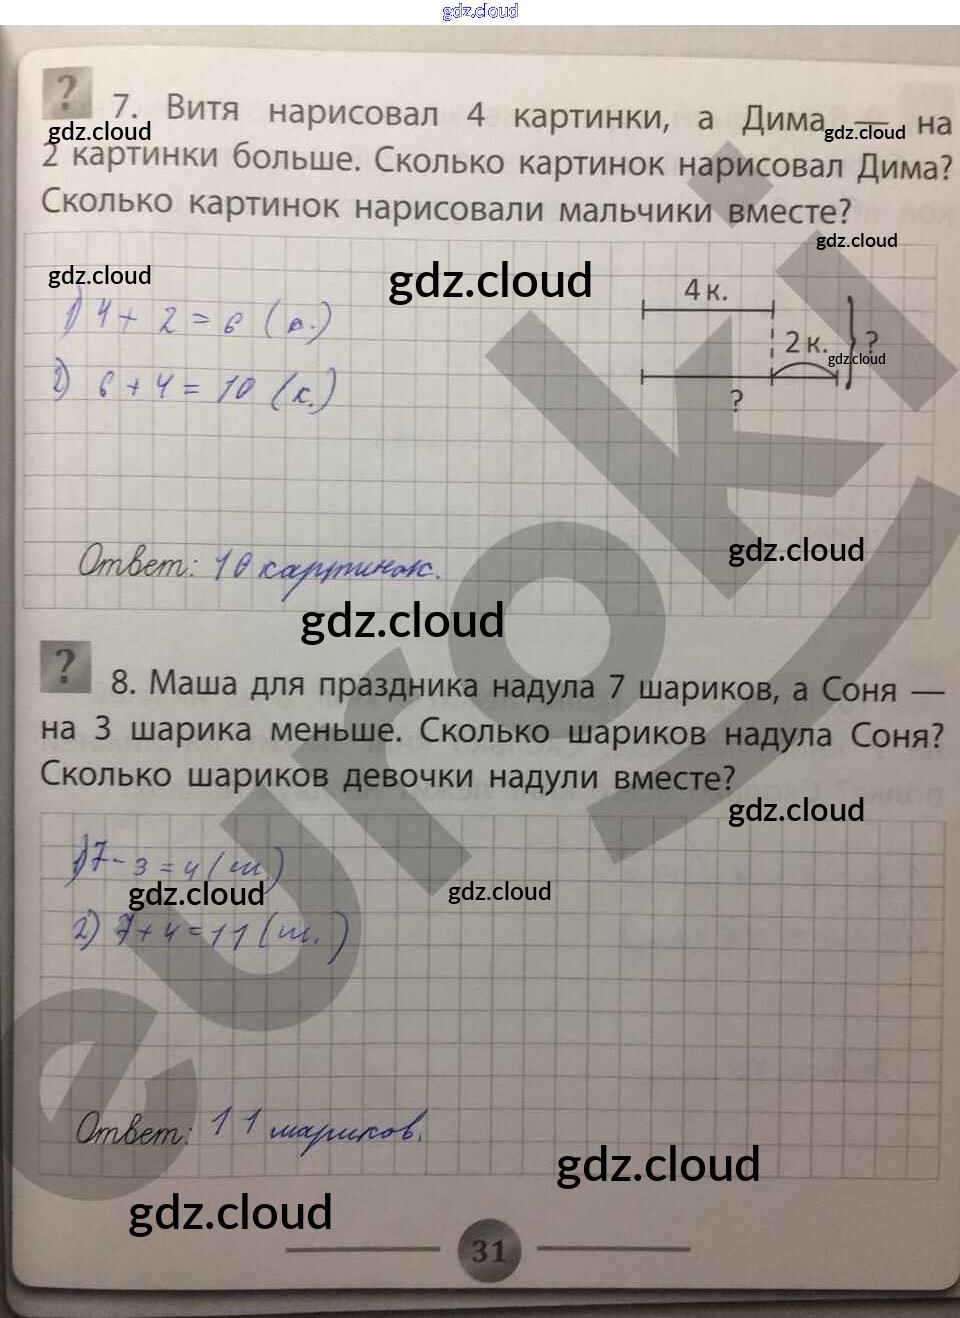 gdz.cloud
?
7. Витя нарисовал 4 картинки, а Дима — на
gdz.cloud
gdz.cloud
2 картинки больше. Сколько картинок нарисовал Дима?
Сколько картинок нарисовали мальчики вместе?
gdz.cloud
gdz.cloud
gdz.cloud
4 к.
1) 4 + 2 = 6 (к.)
2 к. ?
gdz.cloud
2) 6 + 4 = 10 (к.)
?
gdz.cloud
Ответ: 10 картинок.
gdz.cloud
?
8. Маша для праздника надула 7 шариков, а Соня —
на 3 шарика меньше. Сколько шариков надула Соня?
Сколько шариков девочки надули вместе?
gdz.cloud
1) 7 - 3 = 4 (ш.)
gdz.cloud
gdz.cloud
2) 7 + 4 = 11 (ш.)
Ответ: 11 шариков.
gdz.cloud
gdz.cloud
31
euroki